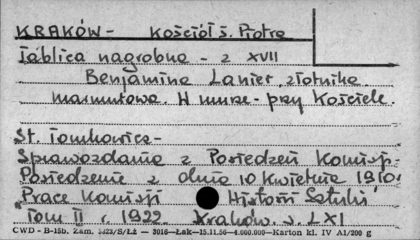 KRAKÓW - Kościół ś. Piotra
Tablica nagrobna - z XVII
Benjamina Lanier, złotnika
marmurowa. W murze - przy Kościele.
St. Tomkowicz -
Sprawozdanie z Posiedzeń Komisji
Posiedzenie z dnia 10 kwietnia 1910.
Prace Komisji Historii Sztuki
Tom II r. 1922. Kraków. s. LXI
CWD - B-15b. Zam. 5323/S/Łź — 3016—Łak—15.11.56—4.000.000—Karton kl. IV A1/200 g